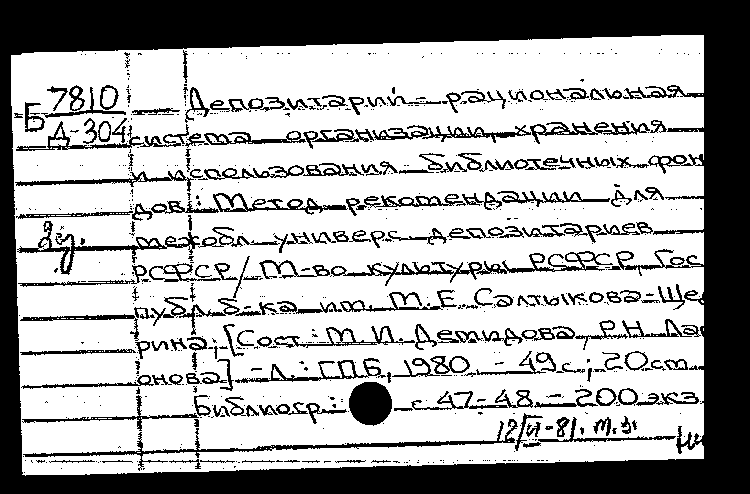 Б 7810 Депозитарий - рациональная
Д-304 система организации, хранения
и использования библиотечных фон
дов: Метод рекомендации для
2 у. межобл универс депозитариев
РСФСР / М-во культуры РСФСР, Гос
публ. б-ка им. М. Е. Салтыкова-Щед
рина; [Сост.: М. И. Демидова, Р.Н. Лар
онова] - Л.: ГПБ, 1980. - 49 с; 20 см
Библиогр.: с 47-48. - 200 экз
12/VI-81.